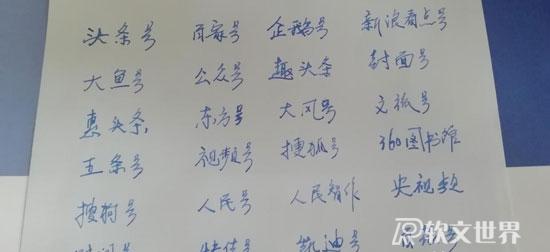 头条号 百家号 企鹅号 新浪看点号
大鱼号 公众号 趣头条 封面号
惠头条 东方号 大风号 文狐号
五条号 视频号 搜狐号 360图书馆
搜狗号 人民号 人民智作 央视频
凯迪号
软文世界